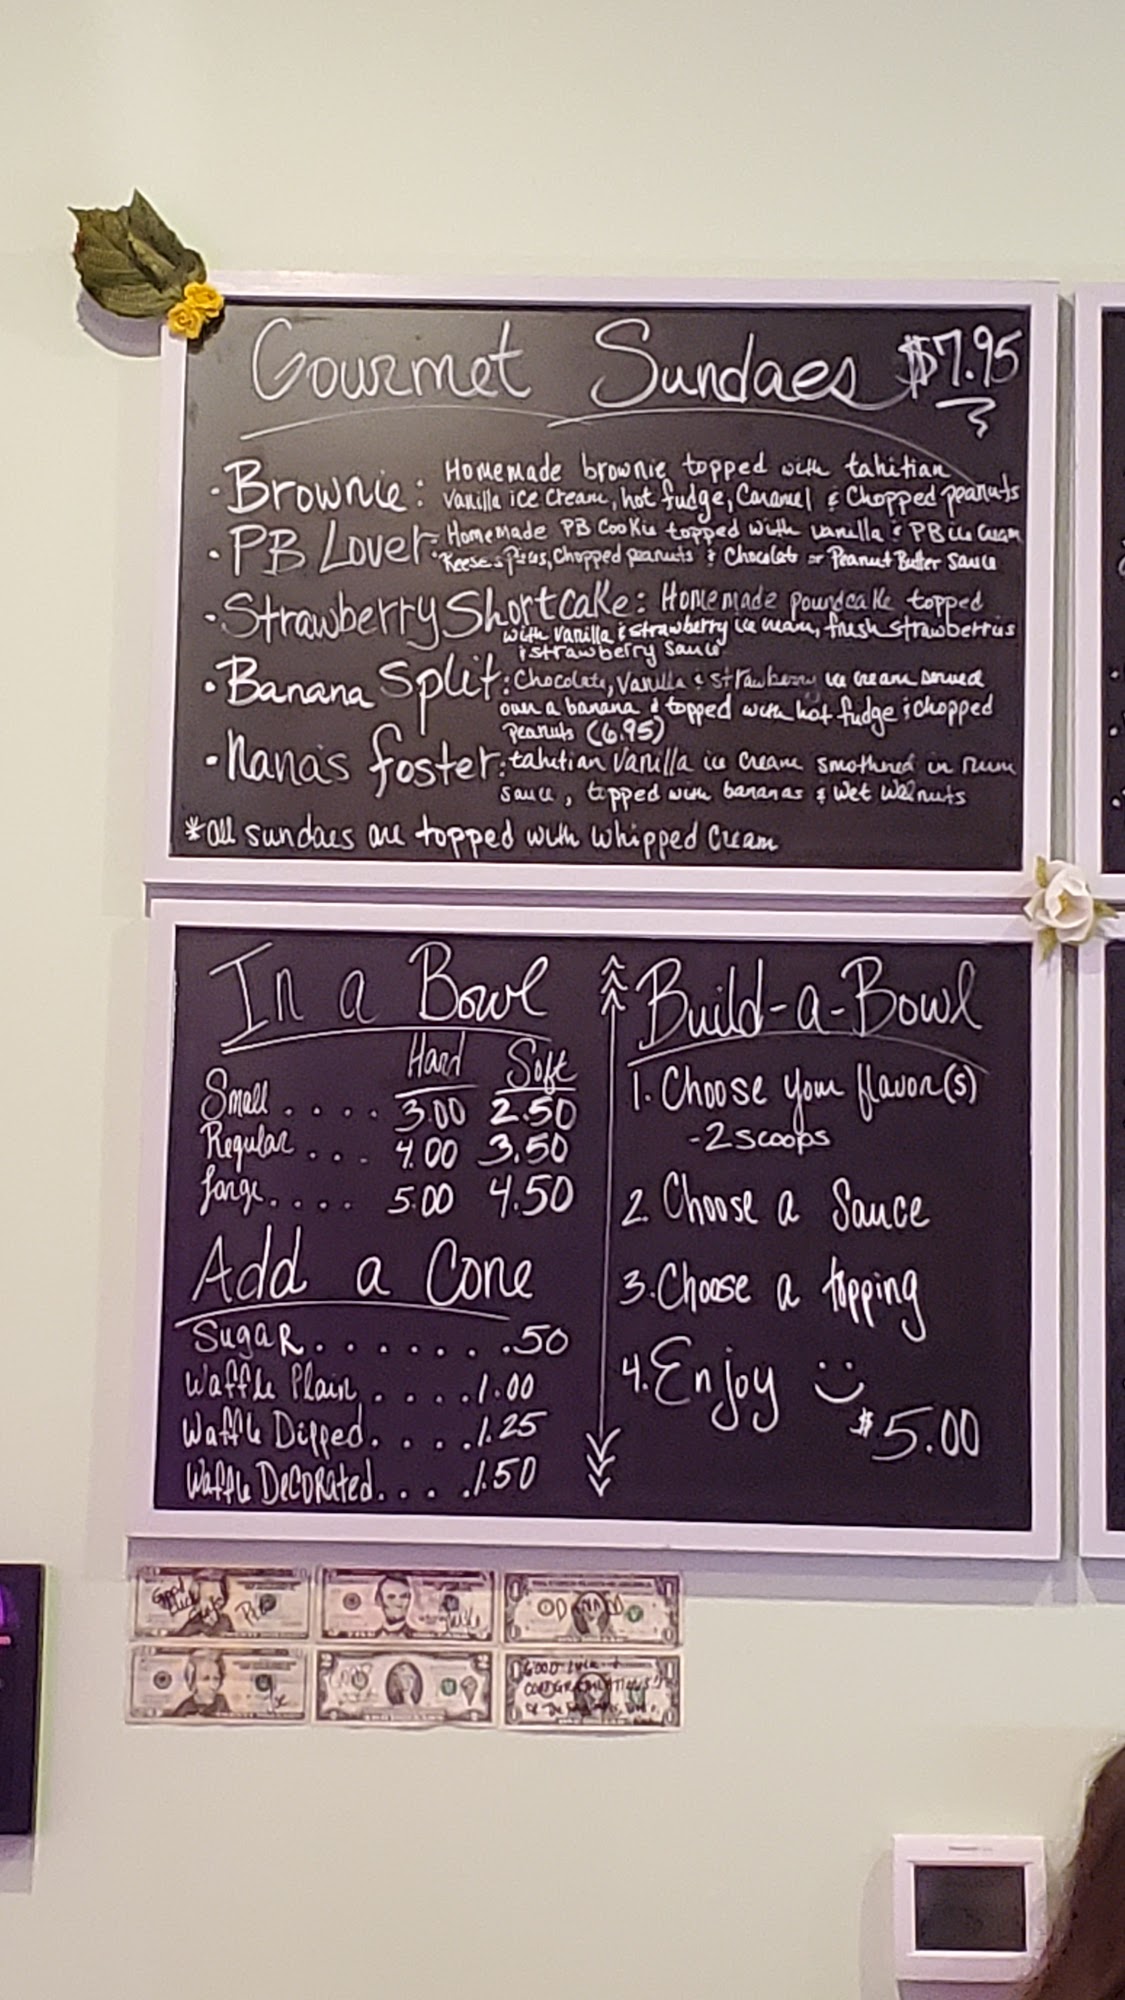 Gourmet Sundaes $7.95
· Brownie: Homemade brownie topped with tahitian
vanilla ice cream, hot fudge, Caramel & Chopped peanuts
· PB Lover: Homemade PB Cookie topped with vanilla & PB ice cream
Reeses Pieces, Chopped peanuts & Chocolate or Peanut Butter Sauce
· Strawberry Shortcake: Homemade poundcake topped
with vanilla & strawberry ice cream, fresh strawberries
& strawberry sauce
· Banana Split: Chocolate, Vanilla & strawberry ice cream served
over a banana & topped with hot fudge & chopped
peanuts (6.95)
· Nana's foster: tahitian vanilla ice cream smothered in rum
sauce, topped with bananas & wet walnuts
*all sundaes are topped with whipped cream
In a Bowl
Hard Soft
Small . . . . 3.00 2.50
Regular . . . 4.00 3.50
Large. . . . . 5.00 4.50
Add a Cone
Sugar. . . . . . . .50
Waffle Plain . . . . 1.00
Waffle Dipped. . . . . 1.25
Waffle Decorated. . . . . 1.50
Build-a-Bowl
1. Choose your flavor(s)
- 2 scoops
2. Choose a Sauce
3. Choose a topping
4. Enjoy :)
$5.00
Good
Luck
GOOD LUCK +
CONGRATULATIONS